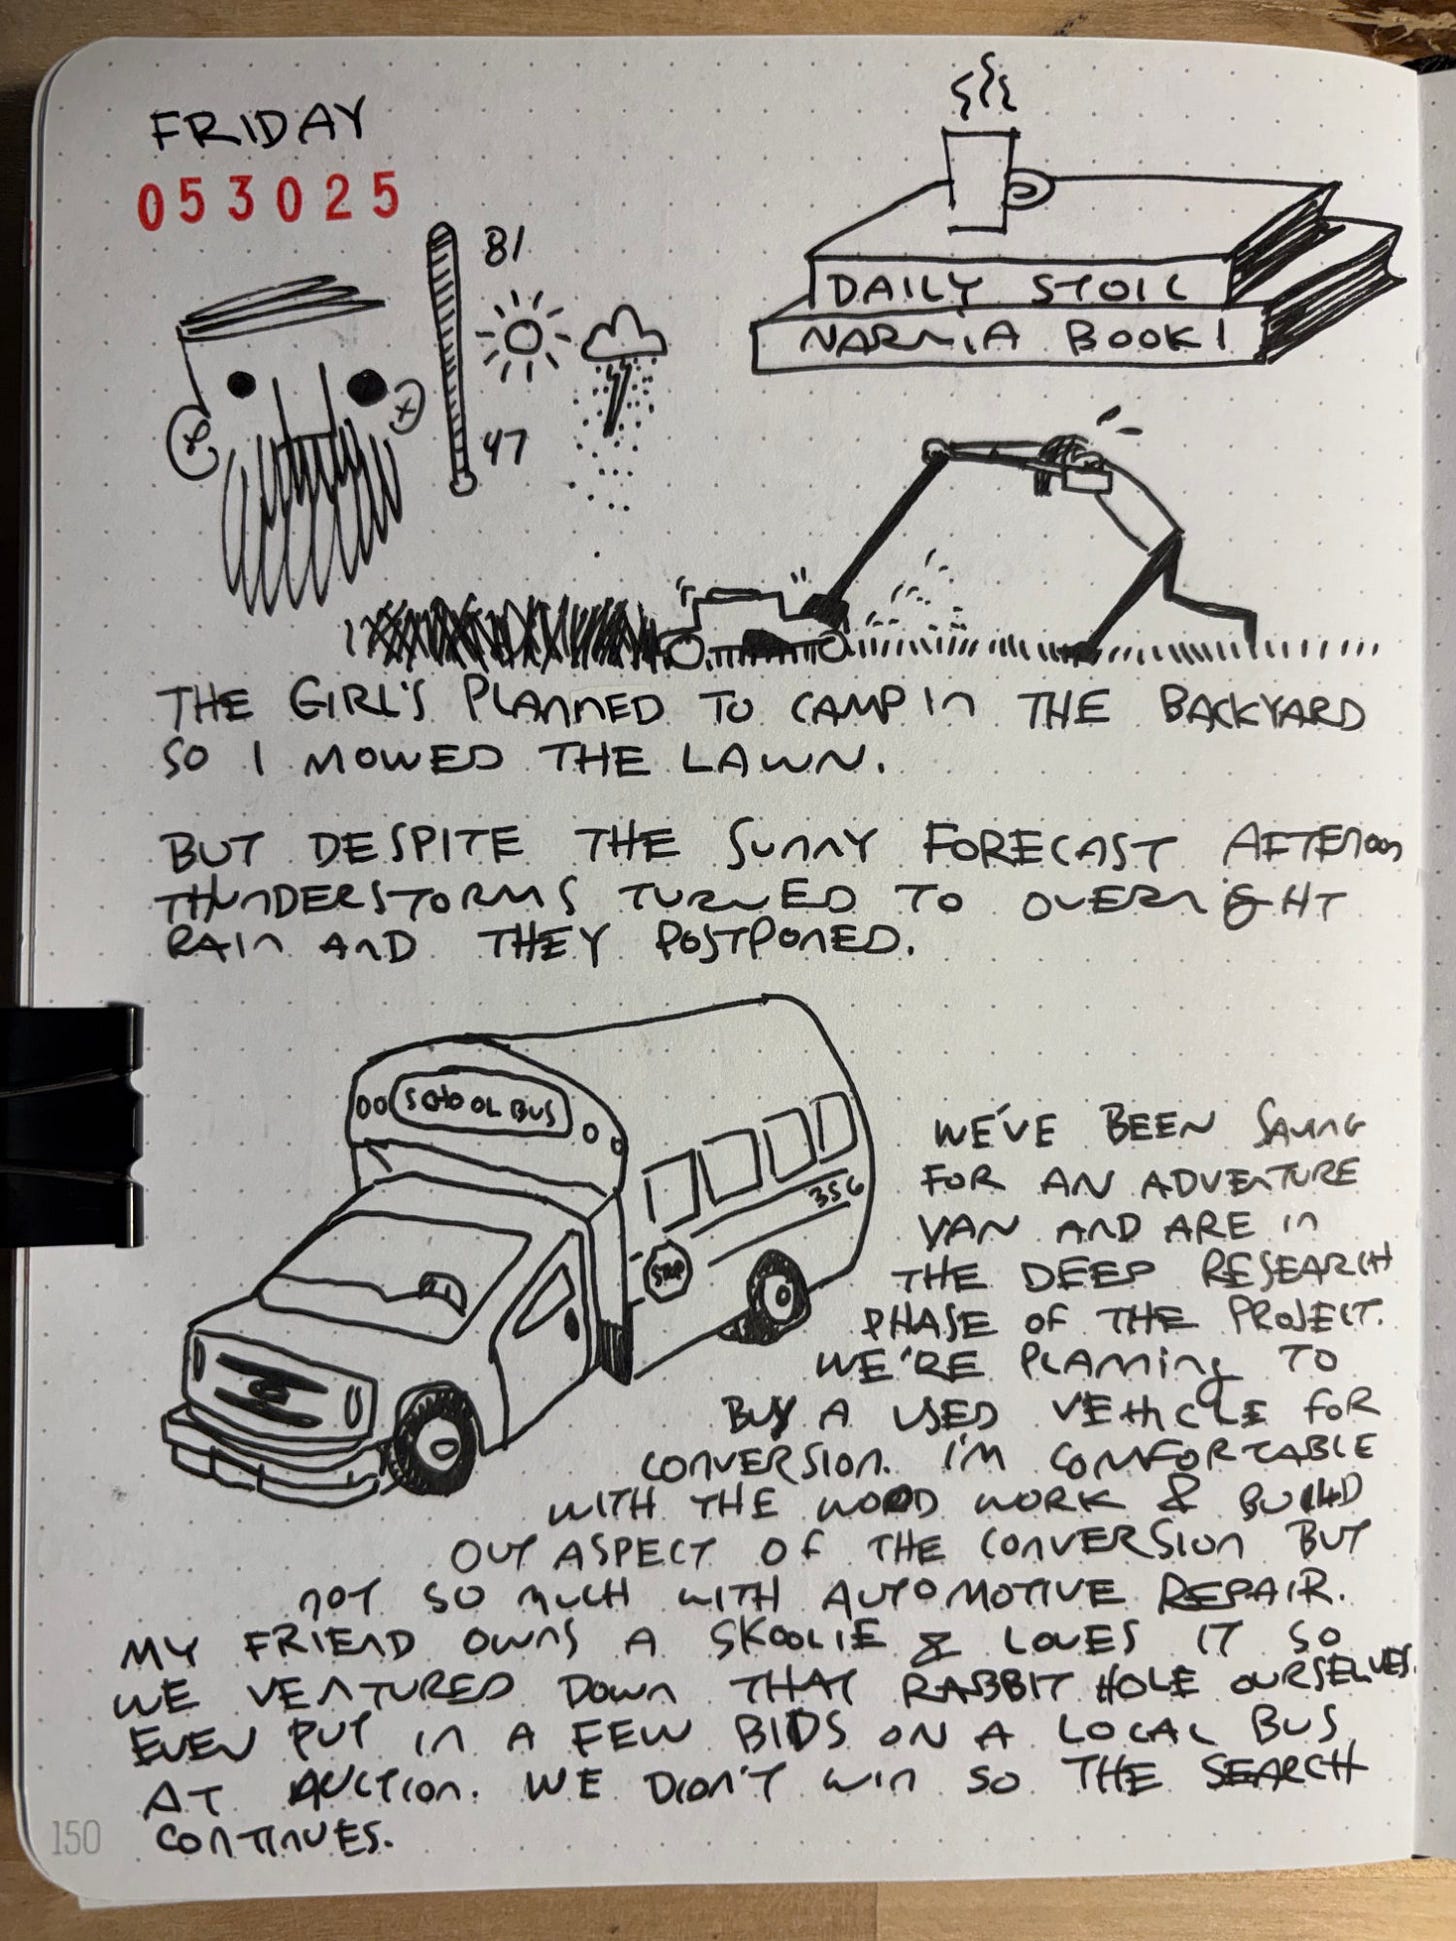 FRIDAY
053025
81
47
DAILY STOIC
NARNIA BOOK 1
THE GIRL'S PLANNED TO CAMP IN THE BACKYARD
SO I MOWED THE LAWN.
BUT DESPITE THE SUNNY FORECAST AFTERNOON
THUNDERSTORMS TURNED TO OVERNIGHT
RAIN AND THEY POSTPONED.
SCHOOL BUS
356
STOP
WE'VE BEEN SAVING
FOR AN ADVENTURE
VAN AND ARE IN
THE DEEP RESEARCH
PHASE OF THE PROJECT.
WE'RE PLANNING TO
BUY A USED VEHICLE FOR
CONVERSION. I'M COMFORTABLE
WITH THE WOOD WORK & BUILD
OUT ASPECT OF THE CONVERSION BUT
NOT SO MUCH WITH AUTOMOTIVE REPAIR.
MY FRIEND OWNS A SKOOLIE & LOVES IT SO
WE VENTURED DOWN THAT RABBIT HOLE OURSELVES.
EVEN PUT IN A FEW BIDS ON A LOCAL BUS
AT AUCTION. WE DIDN'T WIN SO THE SEARCH
CONTINUES.
150